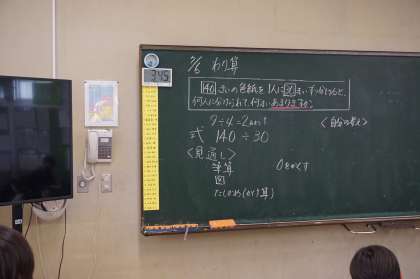 わり算
140まいの色紙を1人に30まいずつ分けると、
何人に分けられて、何まいあまりますか。
9÷4=2あまり1
<自分の考え>
式 140÷30
<見通し>
筆算
0をかくす
図
たしかめ(かけ算)